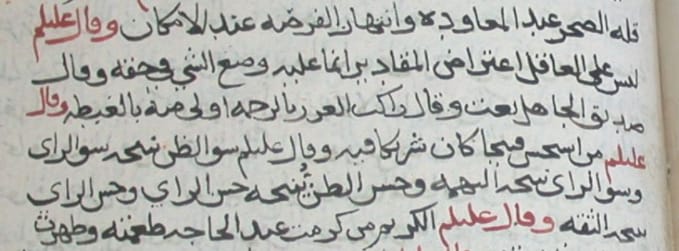 قله الضجر عند المعاوده وانتهاز الفرصه عند الامكان وقال عليلم
ليس على العاقل اعتراض المقادير انما عليه وضع الشي في حقه وقال
صديق الجاهل تعب وقال راكب الغرر بالرحمه اولى منه بالغبطه وقال
عليلم من استحسن قبيحا كان شريكا فيه وقال عليلم سو الظن نتيجه سو الراي
وسو الراي نتيجه التهمه وحسن الظن نتيجه حسن الراي وحسن الراي
نتيجه الثقه وقال عليلم الكريم من كرمت عند الحاجه طعمته وظهرت